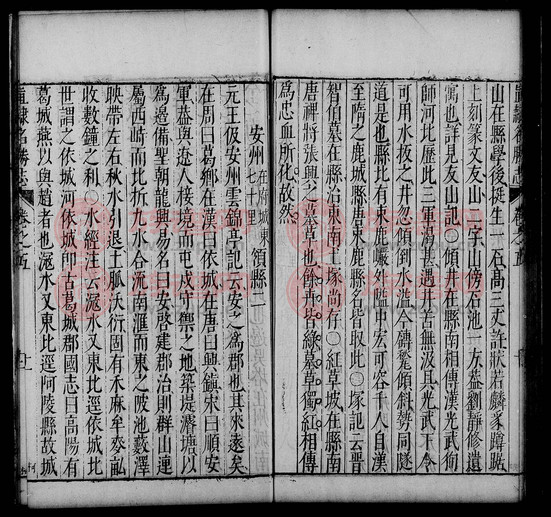 山在縣學後挺生一石高三丈許狀若麟豸蹲踞
上刻篆文友山二字山傍石池一方蓋劉靜修遺
寓也詳見友山記〇傾井在縣南相傳漢光武狥
師河北歷此三軍渴甚遇井苦無汲具光武下令
可用水扳之井忽傾倒水溢今磚甃傾斜勢同隧
道是也縣北有東鹿巖外隘中宏可容千人自漢
至隋之鹿城唐東鹿縣名皆取此〇塚記云晉
智伯墓在縣治東南土塚尚存〇紅草坡在縣南
唐禆將張興之墓草也餘卉皆綠墓草獨紅相傳
為忠血所化故然
安州 在府城東七十里 領縣一
元王伋安州雲錦亭記云安之為郡也其來遠矣
在周曰葛鄉在漢曰依城在唐曰興鎮宋曰順安
軍益與遼人接境而屯戍守禦之地築堤瀦塘以
為邊備聖朝龍興易名曰安啓建郡治則群山連
屬西峙而北折九水合流南滙而東之陂池藪澤
映帶左右秋水引退土脈沃衍固有木麻牟麥畝
收數鐘之利〇水經注云滱水又東北逕依城北
世謂之依城河依城即古葛城郡國志曰高陽有
葛城燕以與趙者也滱水又東北逕阿陵縣故城
直隸名勝志 卷之五